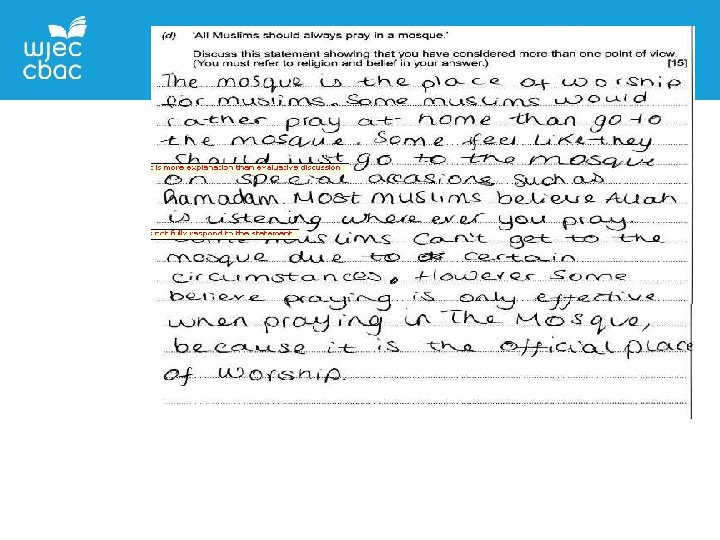 wjec
cbac
(d) 'All Muslims should always pray in a mosque.'
Discuss this statement showing that you have considered more than one point of view.
(You must refer to religion and belief in your answer.) [15]
The mosque is the place of worship
for muslims. Some muslims would
rather pray at home than go to
the mosque. Some feel like they
should just go to the mosque
is more explanation than evaluative discussion
on special accasions such as
Ramadam. Most muslims believe Allah
is listening where ever you pray.
not fully respond to the statement.
Some muslims can't get to the
mosque due to certain
circumstances. However some
believe praying is only effective
when praying in The Mosque,
because it is the official place
of worship.